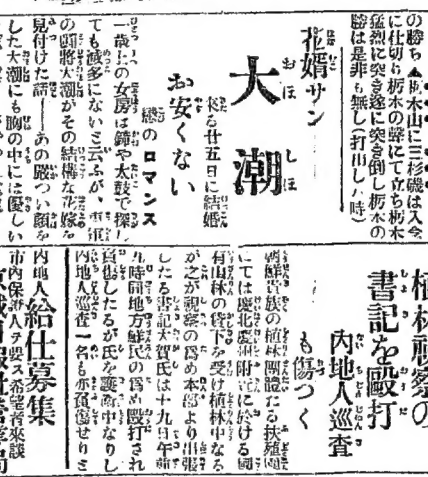 の勝ち▲栃木山に三杉磯は入念
に仕切り栃木の聲にて立ち栃木
猛烈に突き遂に突き倒し栃木の
勝は是非も無し(打出し 時)
花婿サン
大潮
おほしほ
來る廿五日に結婚
お安くない
戀のロマンス
一歳上の女房は鐘や太鼓で探し
ても滅多にないと云ふが、
の關將大潮がその結構な花嫁を
見付けた話――あの厳つい顔を
した大潮にも胸の中には優しい
植林視察の
書記を毆打
内地人巡査
も傷つく
朝鮮貴族の植林團體たる扶殖
にては慶北慶州附近に於ける國
有山林の貸下を受け植林中なる
が之が視察の爲め本部より出張
したる書記大賀氏は十九日午前
九時同地方鮮民の爲め毆打され
負傷したるが氏を護衛中なりし
内地人巡査一名も亦負傷せりと
内地人給仕募集
市内保證人ヲ要ス希望者來談